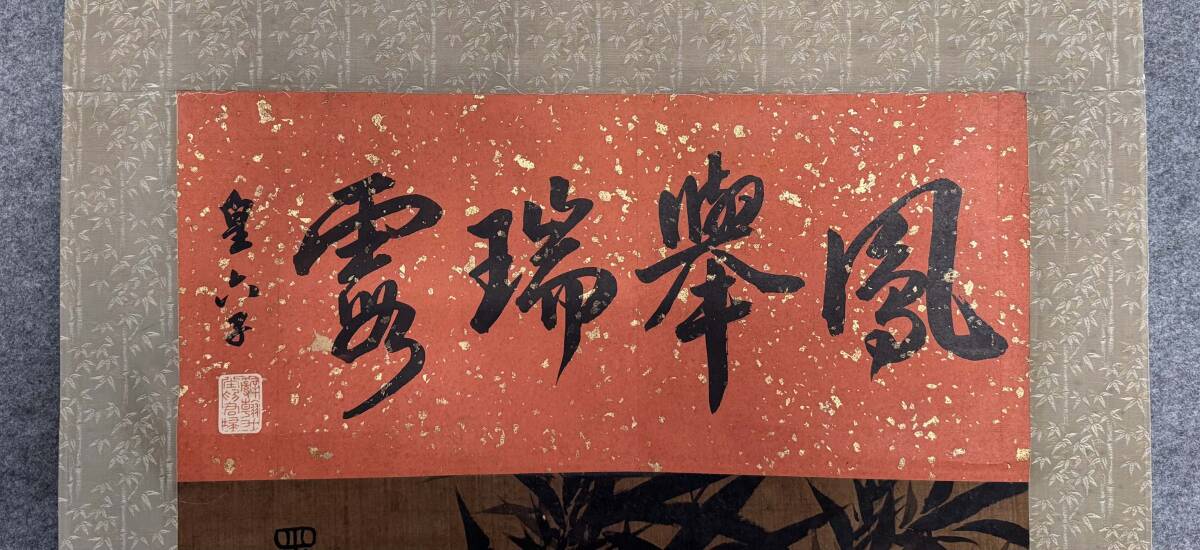 鳳舉瑞露
皇六子